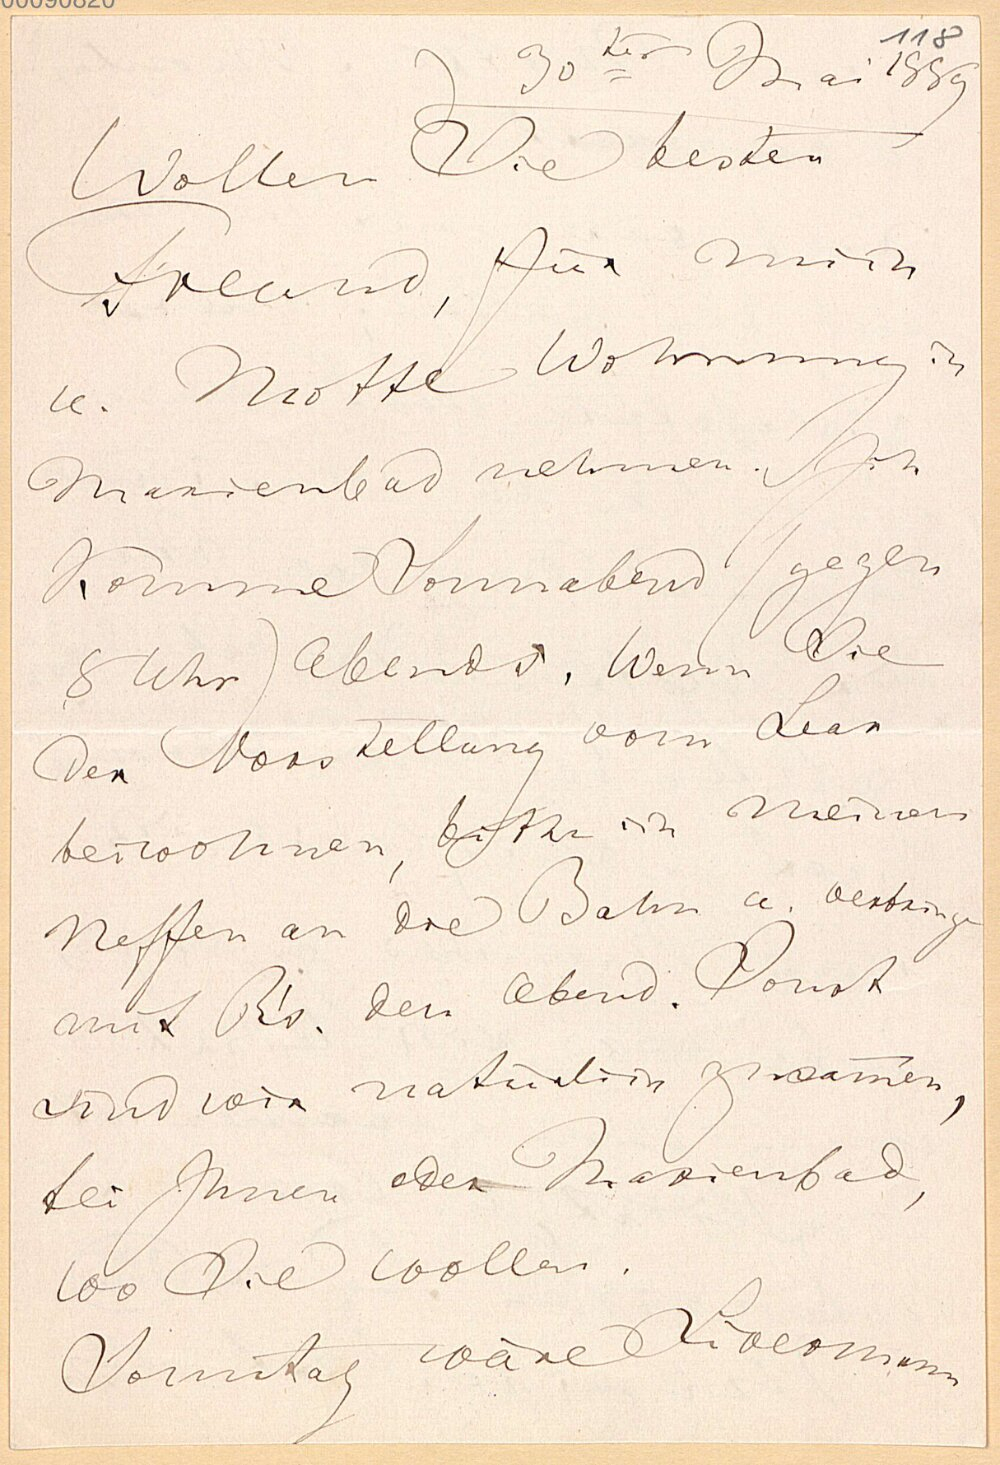 00090820
118
30ter Mai 1889
Wollen Sie besten
Freund, für mich
u. Motte Wohnung in
Marienbad nehmen. Ich
komme Sonnabend (gegen
8 Uhr) Abends. Wenn Sie
der Vorstellung vom Lear
beiwohnen, bitte ich meinen
Neffen an die Bahn u. verbringe
mit B's. den Abend. Sonst
sind wir natürlich zusam̅en,
bei Ihnen oder Marienbad,
wo Sie wollen.
Sonntag wäre